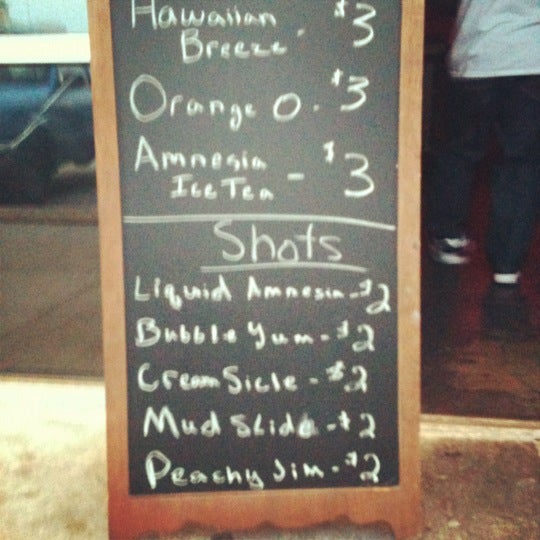 Hawaiian $3
Breeze -
Orange O. $3
Amnesia
Ice Tea - $3
Shots
Liquid Amnesia - $2
Bubble Yum - $2
CreamSicle - $2
Mud Slide - $2
Peachy Jim - $2